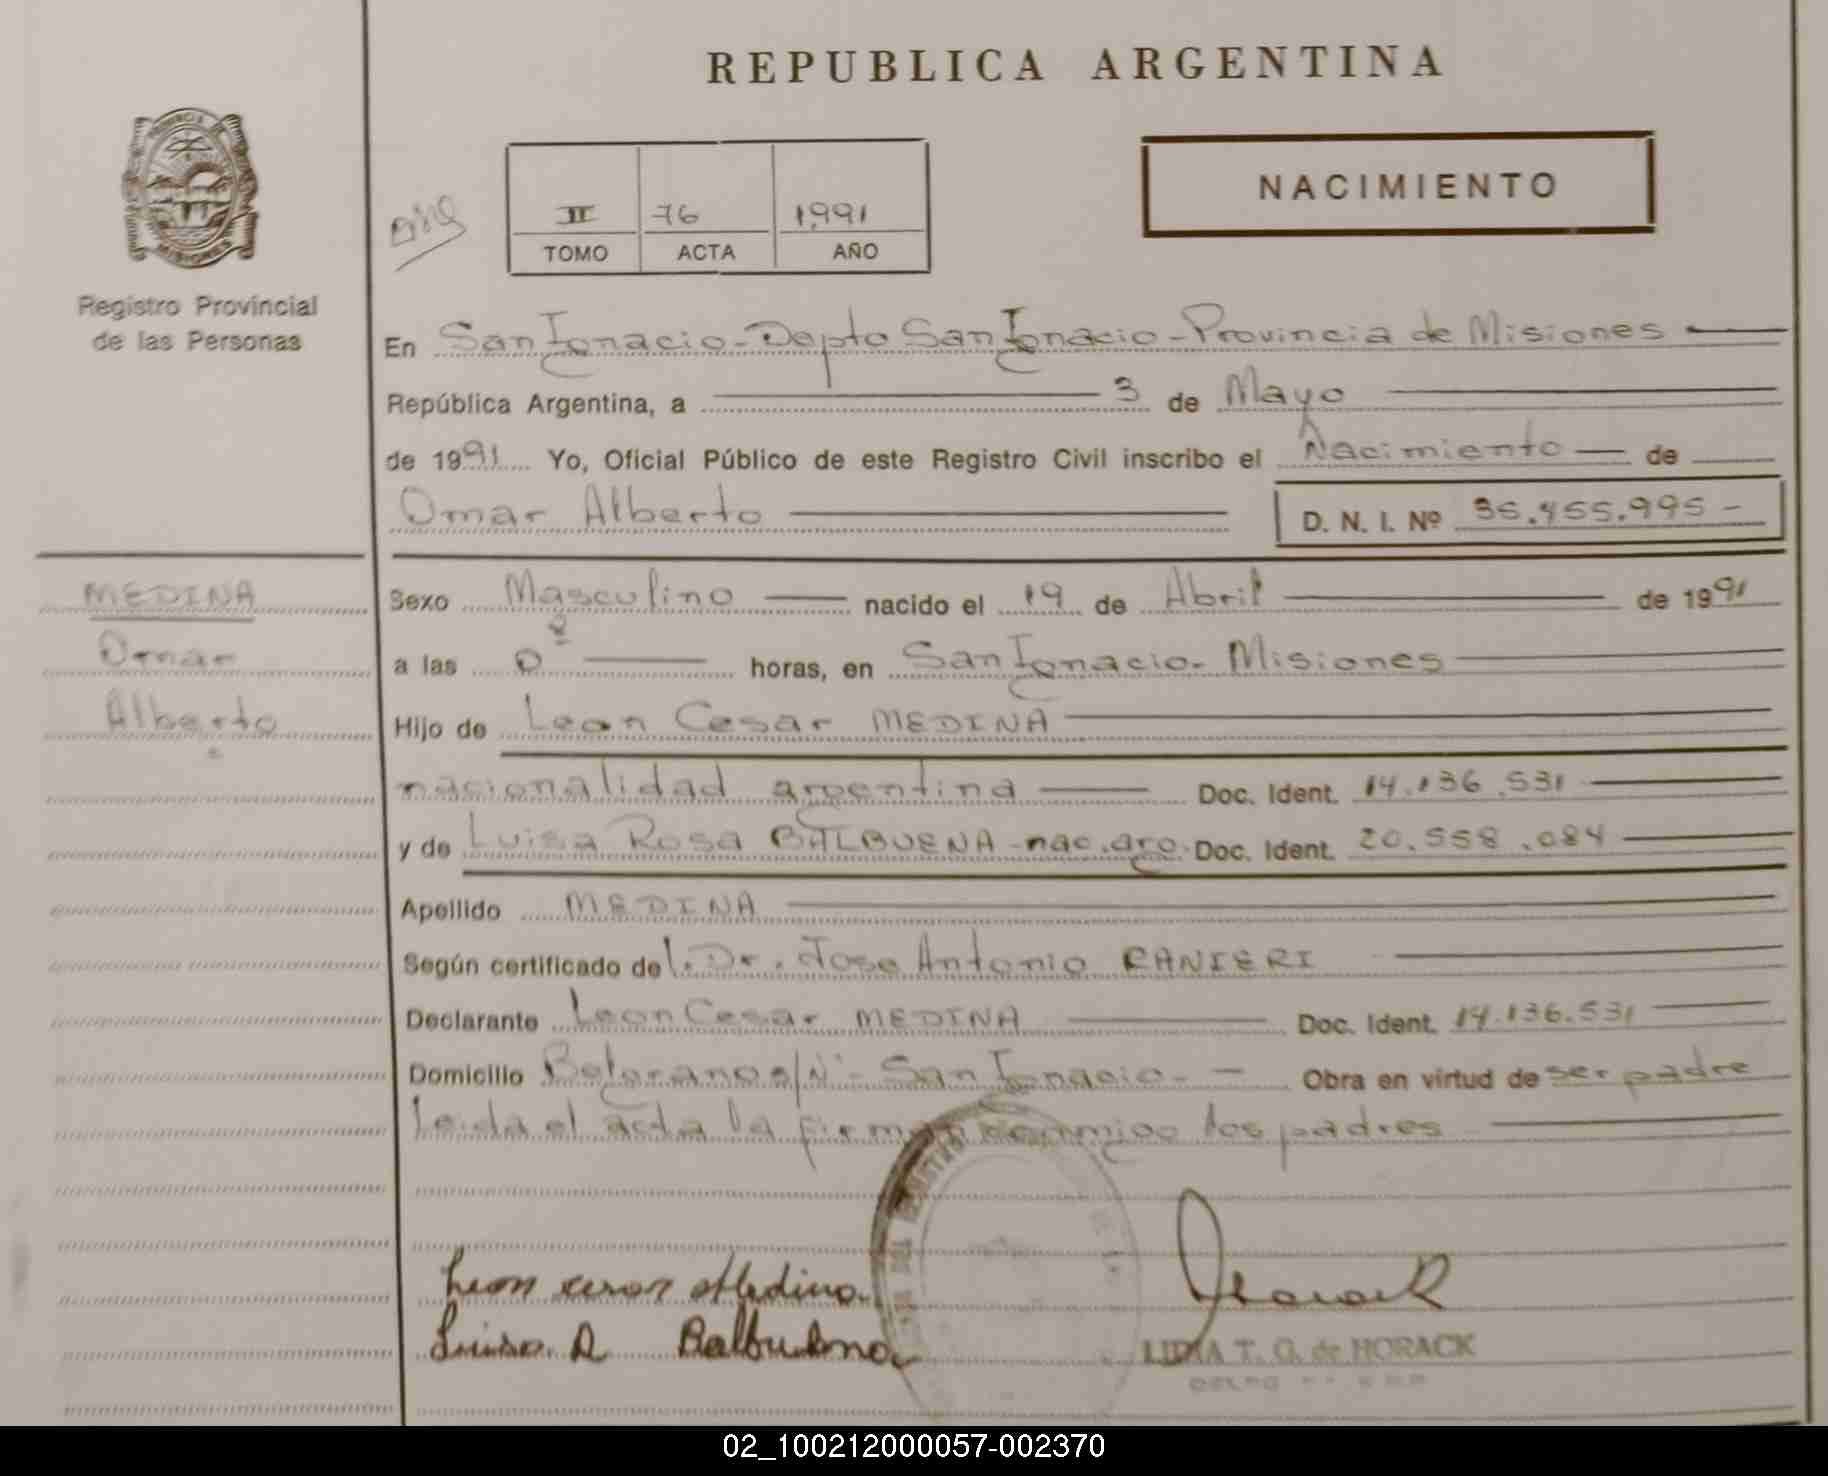 REPUBLICA ARGENTINA
PROVINCIA DE MISIONES
NACIMIENTO
II 76 1991
TOMO ACTA AÑO
Registro Provincial
de las Personas
En San Ignacio - Depto San Ignacio - Provincia de Misiones
República Argentina, a 3 de Mayo
de 1991 Yo, Oficial Público de este Registro Civil inscribo el Nacimiento de
Omar Alberto D. N. I. Nº 35.455.995 -
MEDINA
Omar
Alberto
Sexo Masculino nacido el 19 de Abril de 1991
a las horas, en San Ignacio - Misiones
Hijo de Leon Cesar MEDINA
nacionalidad argentina Doc. Ident. 14.136.531
y de Luisa Rosa BALBUENA - nac. arg. Doc. Ident. 20.558.084
Apellido MEDINA
Según certificado del Dr. Jose Antonio RANIERI
Declarante Leon Cesar MEDINA Doc. Ident. 14.136.531
Domicilio Belgrano s/Nº - San Ignacio - Obra en virtud de ser padre
Leida el acta la firman conmigo los padres
Leon Cesar Medina
Luisa R Balbuena
Horack
LIDIA T. G. de HORACK
02_100212000057-002370